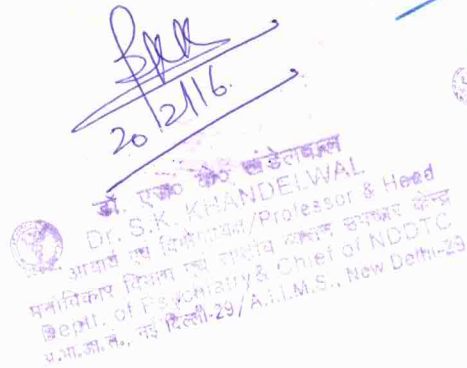 20/2/16
डॉ. एस० के० खंडेलवाल
Dr. S.K. KHANDELWAL
आचार्य एवं विभागाध्यक्ष/Professor & Head
मनोविकार विभाग एवं राष्ट्रीय व्यसन उपचार केन्द्र
Deptt. of Psychiatry & Chief of NDDTC
अ.भा.आ.सं., नई दिल्ली-29/A.I.I.M.S., New Delhi-29